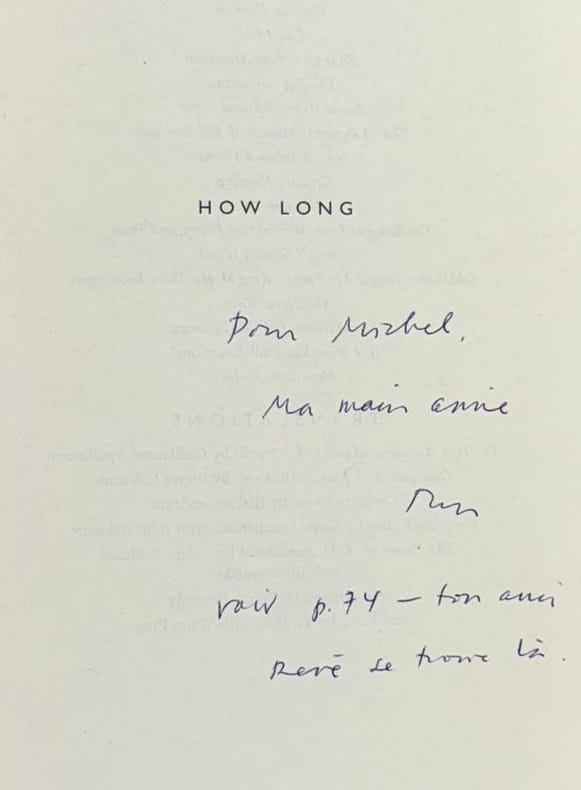 HOW LONG
Pour Michel,
Ma main amie
Ron
voir p. 74 — ton ami
René se trouve là.